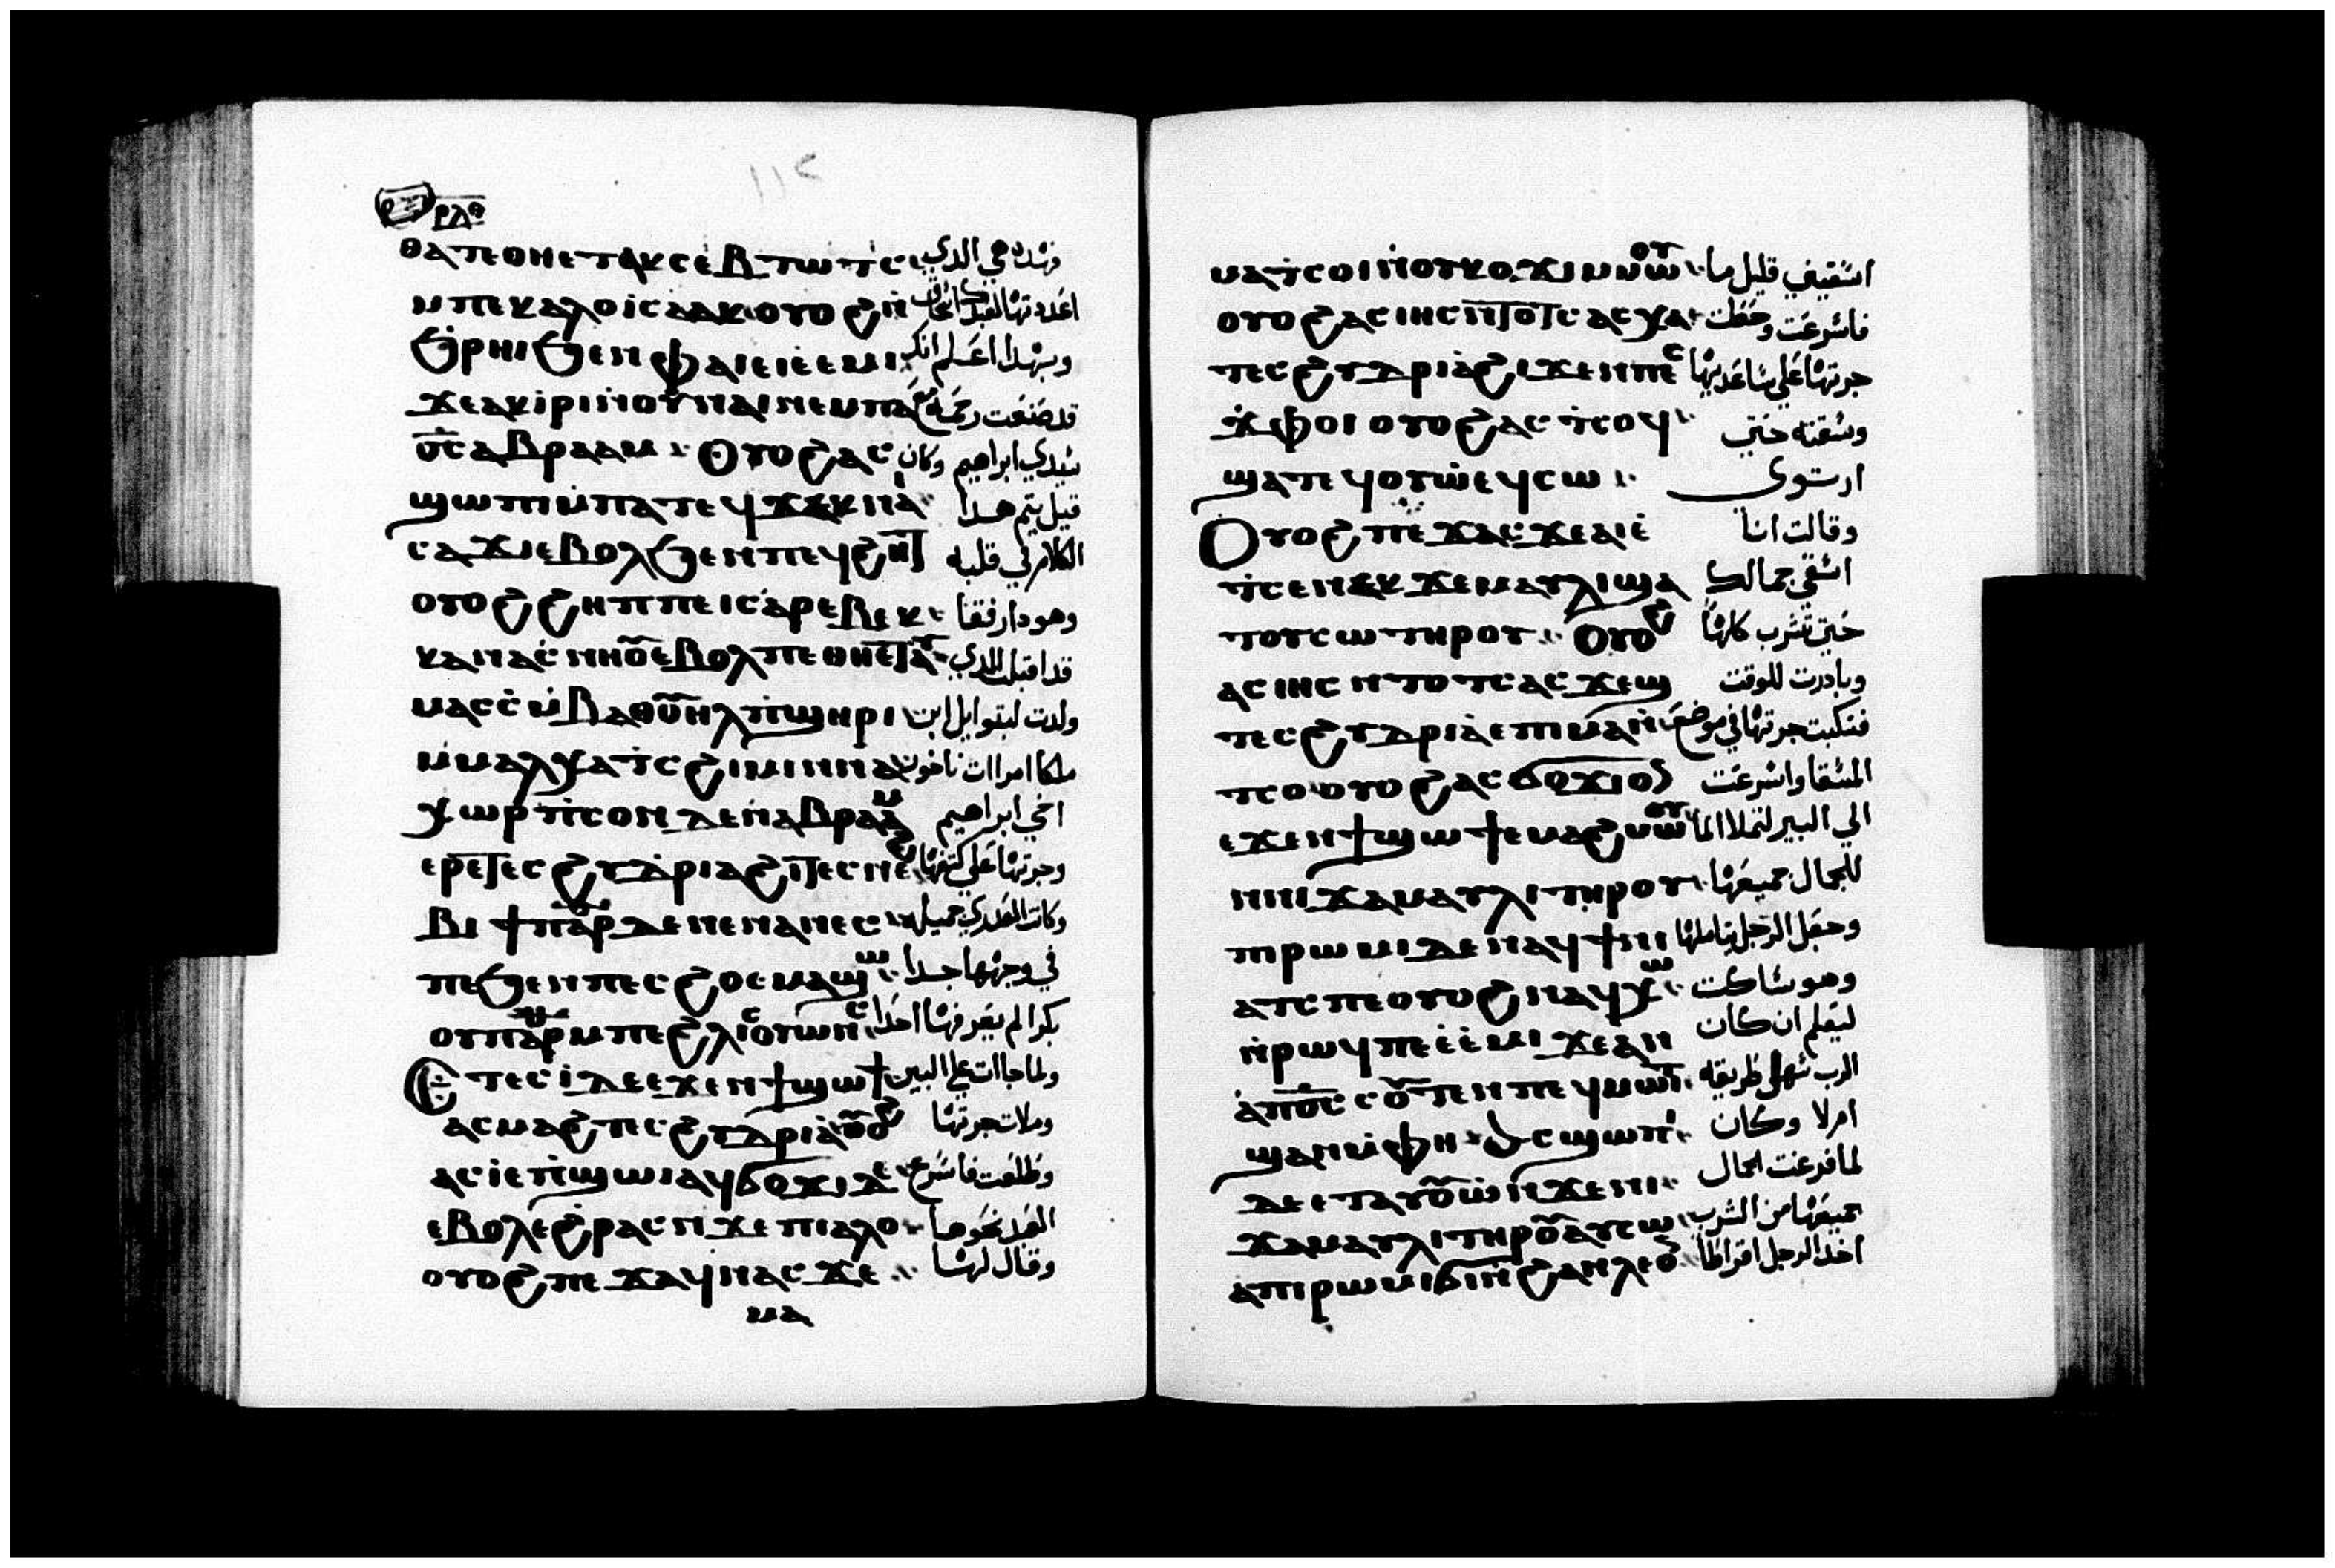 ١١٢
ⲣⲗⲑ
ⲑⲁⲓ ⲡⲉ ⲟⲏⲉⲧⲁⲕⲥⲉⲃⲧⲱⲧⲥ فهده هي الدي
ⲙⲡⲉⲕⲁⲗⲟⲩ ⲓⲥⲁⲁⲕ ⲟⲩⲟϩ ⲛ̀ اعددتها لعبدك اسحاق
ϧⲣⲏⲓ ϧⲉⲛ ⲫⲁⲓ ⲉⲓⲉ̀ⲉⲙⲓ وبهدا اعلم انك
ϫⲉ ⲁⲕⲓⲣⲓ ⲛ̀ⲟⲩⲛⲁⲓ ⲛⲉⲙ ⲡⲁ قد صنعت رحمة مع
ⲟ̅ⲥ̅ ⲁⲃⲣⲁⲁⲙ ⲟⲩⲟϩ ⲁⲥ سيدي ابراهيم وكان
ϣⲱⲡⲓ ⲙ̀ⲡⲁⲧⲉϥϫⲉⲕ ⲛⲁⲓ قبل يتم هدا
ⲥⲁϫⲓ ⲉⲃⲟⲗ ϧⲉⲛ ⲡⲉϥϩⲏⲧ الكلام في قلبه
ⲟⲩⲟϩ ϩⲏⲡⲡⲉ ⲓⲥ ⲁⲣⲉⲃⲉⲕ وهودا رفقا
ⲕⲁ ⲛⲁⲥⲛⲏⲟⲩ ⲉⲃⲟⲗ ⲡⲉ ⲑⲏⲉⲧⲁⲩ قد اقبلت الدي
ⲙⲁⲥⲥ ⲙ̀ⲃⲁⲑⲟⲩⲏⲗ ⲡ̀ϣⲏⲣⲓ ولدت لبتوايل ابن
ⲙ̀ⲙⲁⲗⲭⲁ ⲧ̀ⲥϩⲓⲙⲓ ⲛⲛⲁ ملكا امراات ناخور
ⲭⲱⲣ ⲡ̀ⲥⲟⲛ ⲇⲉ ⲛ̀ⲁⲃⲣⲁⲁⲙ اخي ابراهيم
ⲉⲣⲉ ⲧⲉⲥϩⲩⲇⲣⲓⲁ ϩⲓϫⲉⲛ ⲛⲉⲥⲛⲁϩ وجرتها على كتفها
ⲃⲓ ϯⲡⲁⲣ ⲇⲉ ⲛⲉ ⲛⲉⲛⲁⲛⲉⲥ وكانت العدري جميله
ⲡⲉ ϧⲉⲛ ⲡⲉⲥϩⲟ ⲉⲙⲁϣⲱ في وجهها جدا
ⲟⲩⲡⲁⲣ ⲙⲡⲉ ϩⲗⲓ ⲥⲟⲩⲱⲛⲥ بكرا لم يعرفها احد
ⲉⲧⲉⲥⲓ̀ ⲇⲉ ⲉϫⲉⲛ ϯϣⲱϯ ولما جاات على البير
ⲁⲥⲙⲁϩ ⲧⲉⲥϩⲩⲇⲣⲓⲁ ⲟⲩⲟϩ وملات جرتها
ⲁⲥⲓ̀ ⲉ̀ⲡ̀ϣⲱⲓ ⲁϥϭⲟϫⲓ ⲇⲉ وطلعت فاسرع
ⲉⲃⲟⲗ ⲉϩⲣⲁⲥ ⲛϫⲉ ⲡⲓⲁⲗⲟⲩ العبد نحوها
ⲟⲩⲟϩ ⲡⲉϫⲁϥ ⲛⲁⲥ ϫⲉ وقال لها
ⲙⲁ
ⲙⲁⲧⲥⲟⲓ ⲛ̀ⲟⲩⲕⲟⲩϫⲓ ⲙⲙⲱⲟⲩ اسقيني قليل ما
ⲟⲩⲟϩ ⲁⲥⲓⲏⲥ ⲛ̀ⲧⲟⲧⲥ ⲁⲥⲭⲁ فاسرعت وحطت
ⲧⲉⲥϩⲩⲇⲣⲓⲁ̀ ϩⲓϫⲉⲛ ⲡⲉⲥ جرتها على ساعديها
ϫ̀ⲫⲟⲓ ⲟⲩⲟϩ ⲁⲥⲧ̀ⲥⲟϥ وسقته حتي
ϣⲁⲧⲉϥⲟⲩⲱ ⲉϥⲥⲱ ارتوى
ⲟⲩⲟϩ ⲡⲉϫⲁⲥ ϫⲉ ⲁⲓⲉ̀ وقالت انا
ⲧ̀ⲥⲉ ⲛⲉⲕϫⲉⲙⲁⲩⲗⲓ ϣⲁ اسقي جمالك
ⲧⲟⲩⲥⲱ ⲧⲏⲣⲟⲩ ⲟⲩⲟϩ حتي تشرب كلها
ⲁⲥⲓⲏⲥ ⲛⲧⲟⲧⲥ ⲁⲥϫⲉϣ وبادرت للوقت
ⲧⲉⲥϩⲩⲇⲣⲓⲁ̀ ⲉⲡⲓⲙⲁ ⲛ̀ فنكبت جرتها في موضع
ⲧⲥⲟ ⲟⲩⲟϩ ⲁⲥϭⲟϫⲓ ⲟⲛ المسقا واسرعت
ⲉϫⲉⲛ ϯϣⲱϯ ⲉⲙⲁϩ ⲙⲱⲟⲩ الي البير لتملا الما
ⲛⲛⲓϫⲁⲙⲁⲩⲗⲓ ⲧⲏⲣⲟⲩ للجمال جميعها
ⲡⲓⲣⲱⲙⲓ ⲇⲉ ⲛⲁϥϯⲛⲓ وجعل الرجل يتاملها
ⲁⲧⲥ ⲡⲉ ⲟⲩⲟϩ ⲛⲁϥⲭⲱ وهو ساكت
ⲛ̀ⲣⲱϥ ⲡⲉ ⲉ̀ⲉ̀ⲙⲓ ϫⲉ ⲁⲛ ليعلم ان كان
ⲁ̀ ⲡⲟ̅ⲥ̅ ⲥⲟⲩⲧⲉⲛ ⲡⲉϥⲙⲱⲓⲧ الرب سهل طريقه
ϣⲁⲛ ⲙ̀ⲫⲏ ⲁⲥϣⲱⲡⲓ امرلا وكان
ⲇⲉ ⲉⲧⲁⲩⲟⲩⲱ ⲛ̀ϫⲉ ⲛⲓ لما فرغت الجمال
ϫⲁⲙⲁⲩⲗⲓ ⲧⲏⲣⲟⲩ ⲁⲩⲥⲱ جميعها من الشرب
ⲁ ⲡⲓⲣⲱⲙⲓ ϭⲓ ⲛ̀ϩⲁⲛⲗⲉⲟⲛ اخد الرجل اقراطا